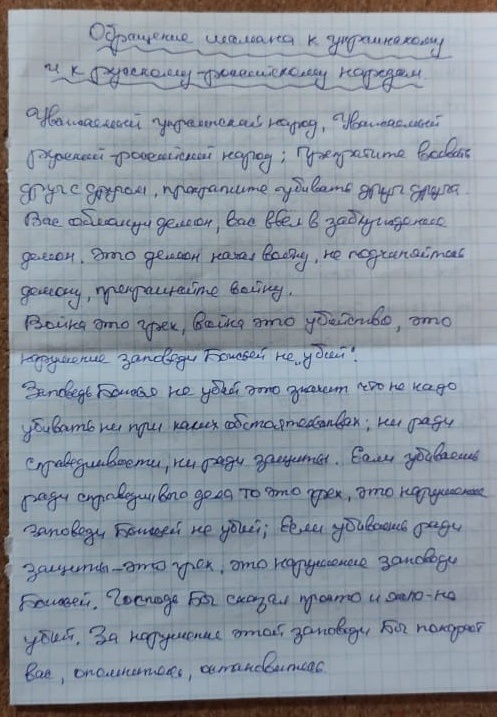 Обращение шамана к украинскому
и к русскому-российскому народам
Уважаемый украинский народ, Уважаемый
русский-российский народ; Прекратите воевать
друг с другом, прекратите убивать друг друга.
Вас обманул демон, вас ввел в заблуждение
демон. Это демон начал войну, не подчиняйтесь
демону, прекращайте войну.
Война это грех, война это убийство, это
нарушение заповеди Божьей не „убий".
Заповедь Божья не убий это значит что не надо
убивать ни при каких обстоятельствах; ни ради
справедливости, ни ради защиты. Если убиваешь
ради справедливого дела то это грех, это нарушение
заповеди Божьей не убий; Если убиваешь ради
защиты-это грех, это нарушение заповеди
Божьей. Господь Бог сказал просто и ясно-не
убий. За нарушение этой заповеди Бог покарает
вас, опомнитесь, остановитесь